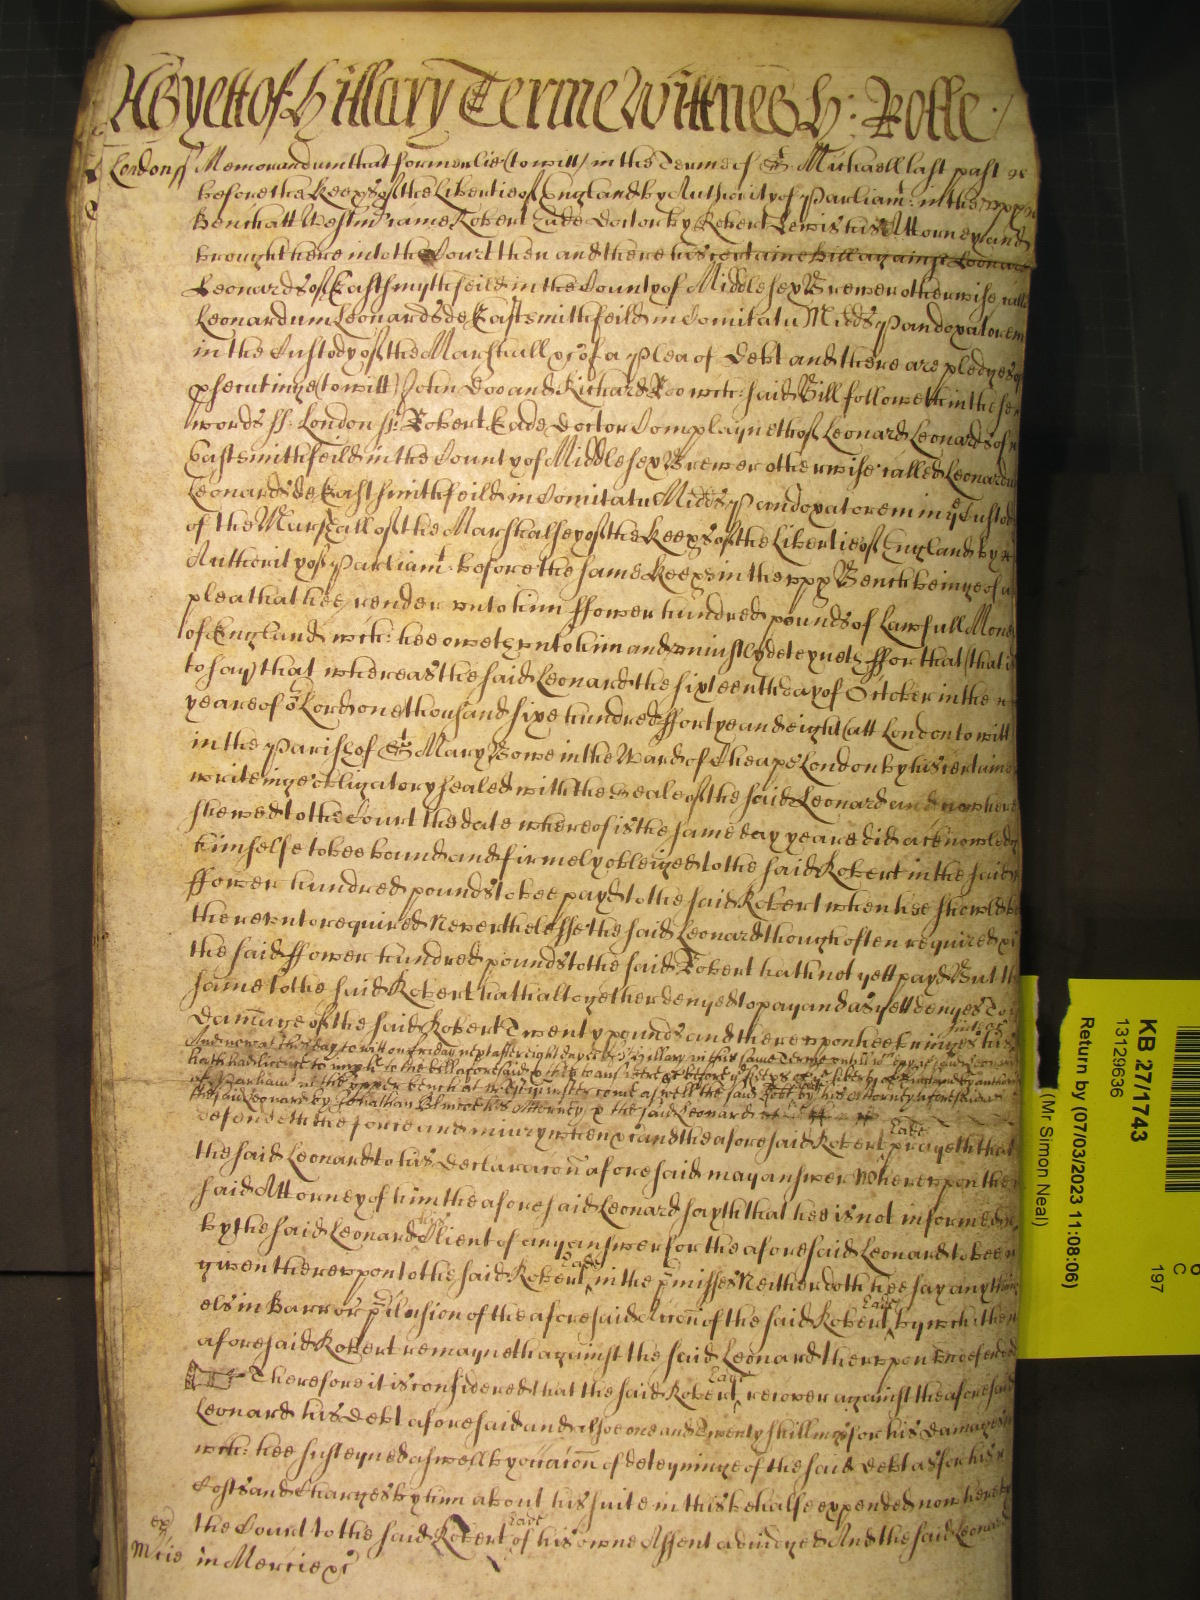 As yett of Hillary Terme Wittnes H: Rolle
London ss Memorandum that formerlie (to witt) in the Terme of St Michaell last past
before the Keeps of the Libertie of England by Authority of Parliamt: in the upp
Bench att Westmr came Robert Eade Doctor by Robert Lewis his Attorney and
brought here into the Court then and there his certaine Bill against Leonard
Leonards of Eastsmythfeild in the County of Middlesex Brewer otherwise called
Leonardum Leonards de Eastsmithfeild in Comitatu Midds Pandoxatorem
in the Custody of the Marshall xc of a Plea of Debt and there are pledges of
psecutinge (to witt) John Doo and Richard Roo wch: said Bill followeth in these
words ss: London ss: Robert Eade Doctor Complayneth of Leonard Leonards of
Eastsmithfeild in the County of Middlesex Brewer otherwise called Leonardu
Leonards de Eastsmithfeild in Comitatu Midds Pandoxatorem in ye Custod
of the Marshall of the Marshalsey of the Keeps of the Libertie of England by
Authority of Parliamt: before the same Keeps in the upp Bench beinge of a
plea that hee render unto him ffower hundred pounds of Lawfull Mone
of England wch: hee oweth unto him and uniustly deteyneth ffor that (that is
to say) that whereas the said Leonard the sixteenth day of October in the
yeare of or Lord one thousand sixe hundred ffortye and eight (att London to witt
in the Parish of St Mary Bowe in the Ward of Cheape London by his certaine
writeinge obligatory sealed with the Seale of the said Leonard and now here
shewed to the Court the date whereof is the same day yeare did acknowledg
himselfe to bee bound and firmely obleiged to the said Robert in the said
ffower hundred pounds to bee payd to the said Robert when hee should be
thereunto required Neverthelesse the said Leonard though often required xc
the said ffower hundred pounds to the said Robert hath not yett payd But th
same to the said Robert hath altogether denyed to pay and as yett denyes To ye
Dammage of the said Robert Twenty pounds and thereupon hee bringes his
suit xc
And now at this day to witt on Friday next after eight dayes of St Hillary in this same Terme untill wch day the said Leonard
hath had licence to imparle to the bill aforesaid & then to answere xc before ye Keeps of ye libertie of England by authori
of Parliamt at the upper bench at Westminster come aswell the said Robt by his Attorney aforesaid as
the said Leonard by Johnathan his Attorney & the said Leonard
defendeth the force and iniury when xc and the aforesaid Robert Eade prayeth that
the said Leonard to his Declaracon aforesaid may answer Whereupon the
said Attorney of him the aforesaid Leonard sayth that hee is not informed
by the said Leonard his Client of any answer for the aforesaid Leonard to bee
given thereupon to the said Robert Eade in the pmisses Neither doth hee say any thing
els in Barr or pclusion of the aforesaid Accon of the said Robert Eade by wch: the
aforesaid Robert remayneth against the said Leonard therupon undefended
Therefore it is considered that the said Robert Eade recover against the aforesaid
Leonard his Debt aforesaid and alsoe one and Twenty shillings for his Damages
wch: hee susteyned aswell by occacion of deteyninge of the said Debt as for his
Costs and Charges by him about his suite in this behalfe expended now here by
the Court to the said Robert Eade of his owne Assent adiudged And the said Leonard
Mcie in Mercie xc
KB 27/1743
13129636
Return by (07/03/2023 11:08:06)
(Mr Simon Neal)
6
C
197